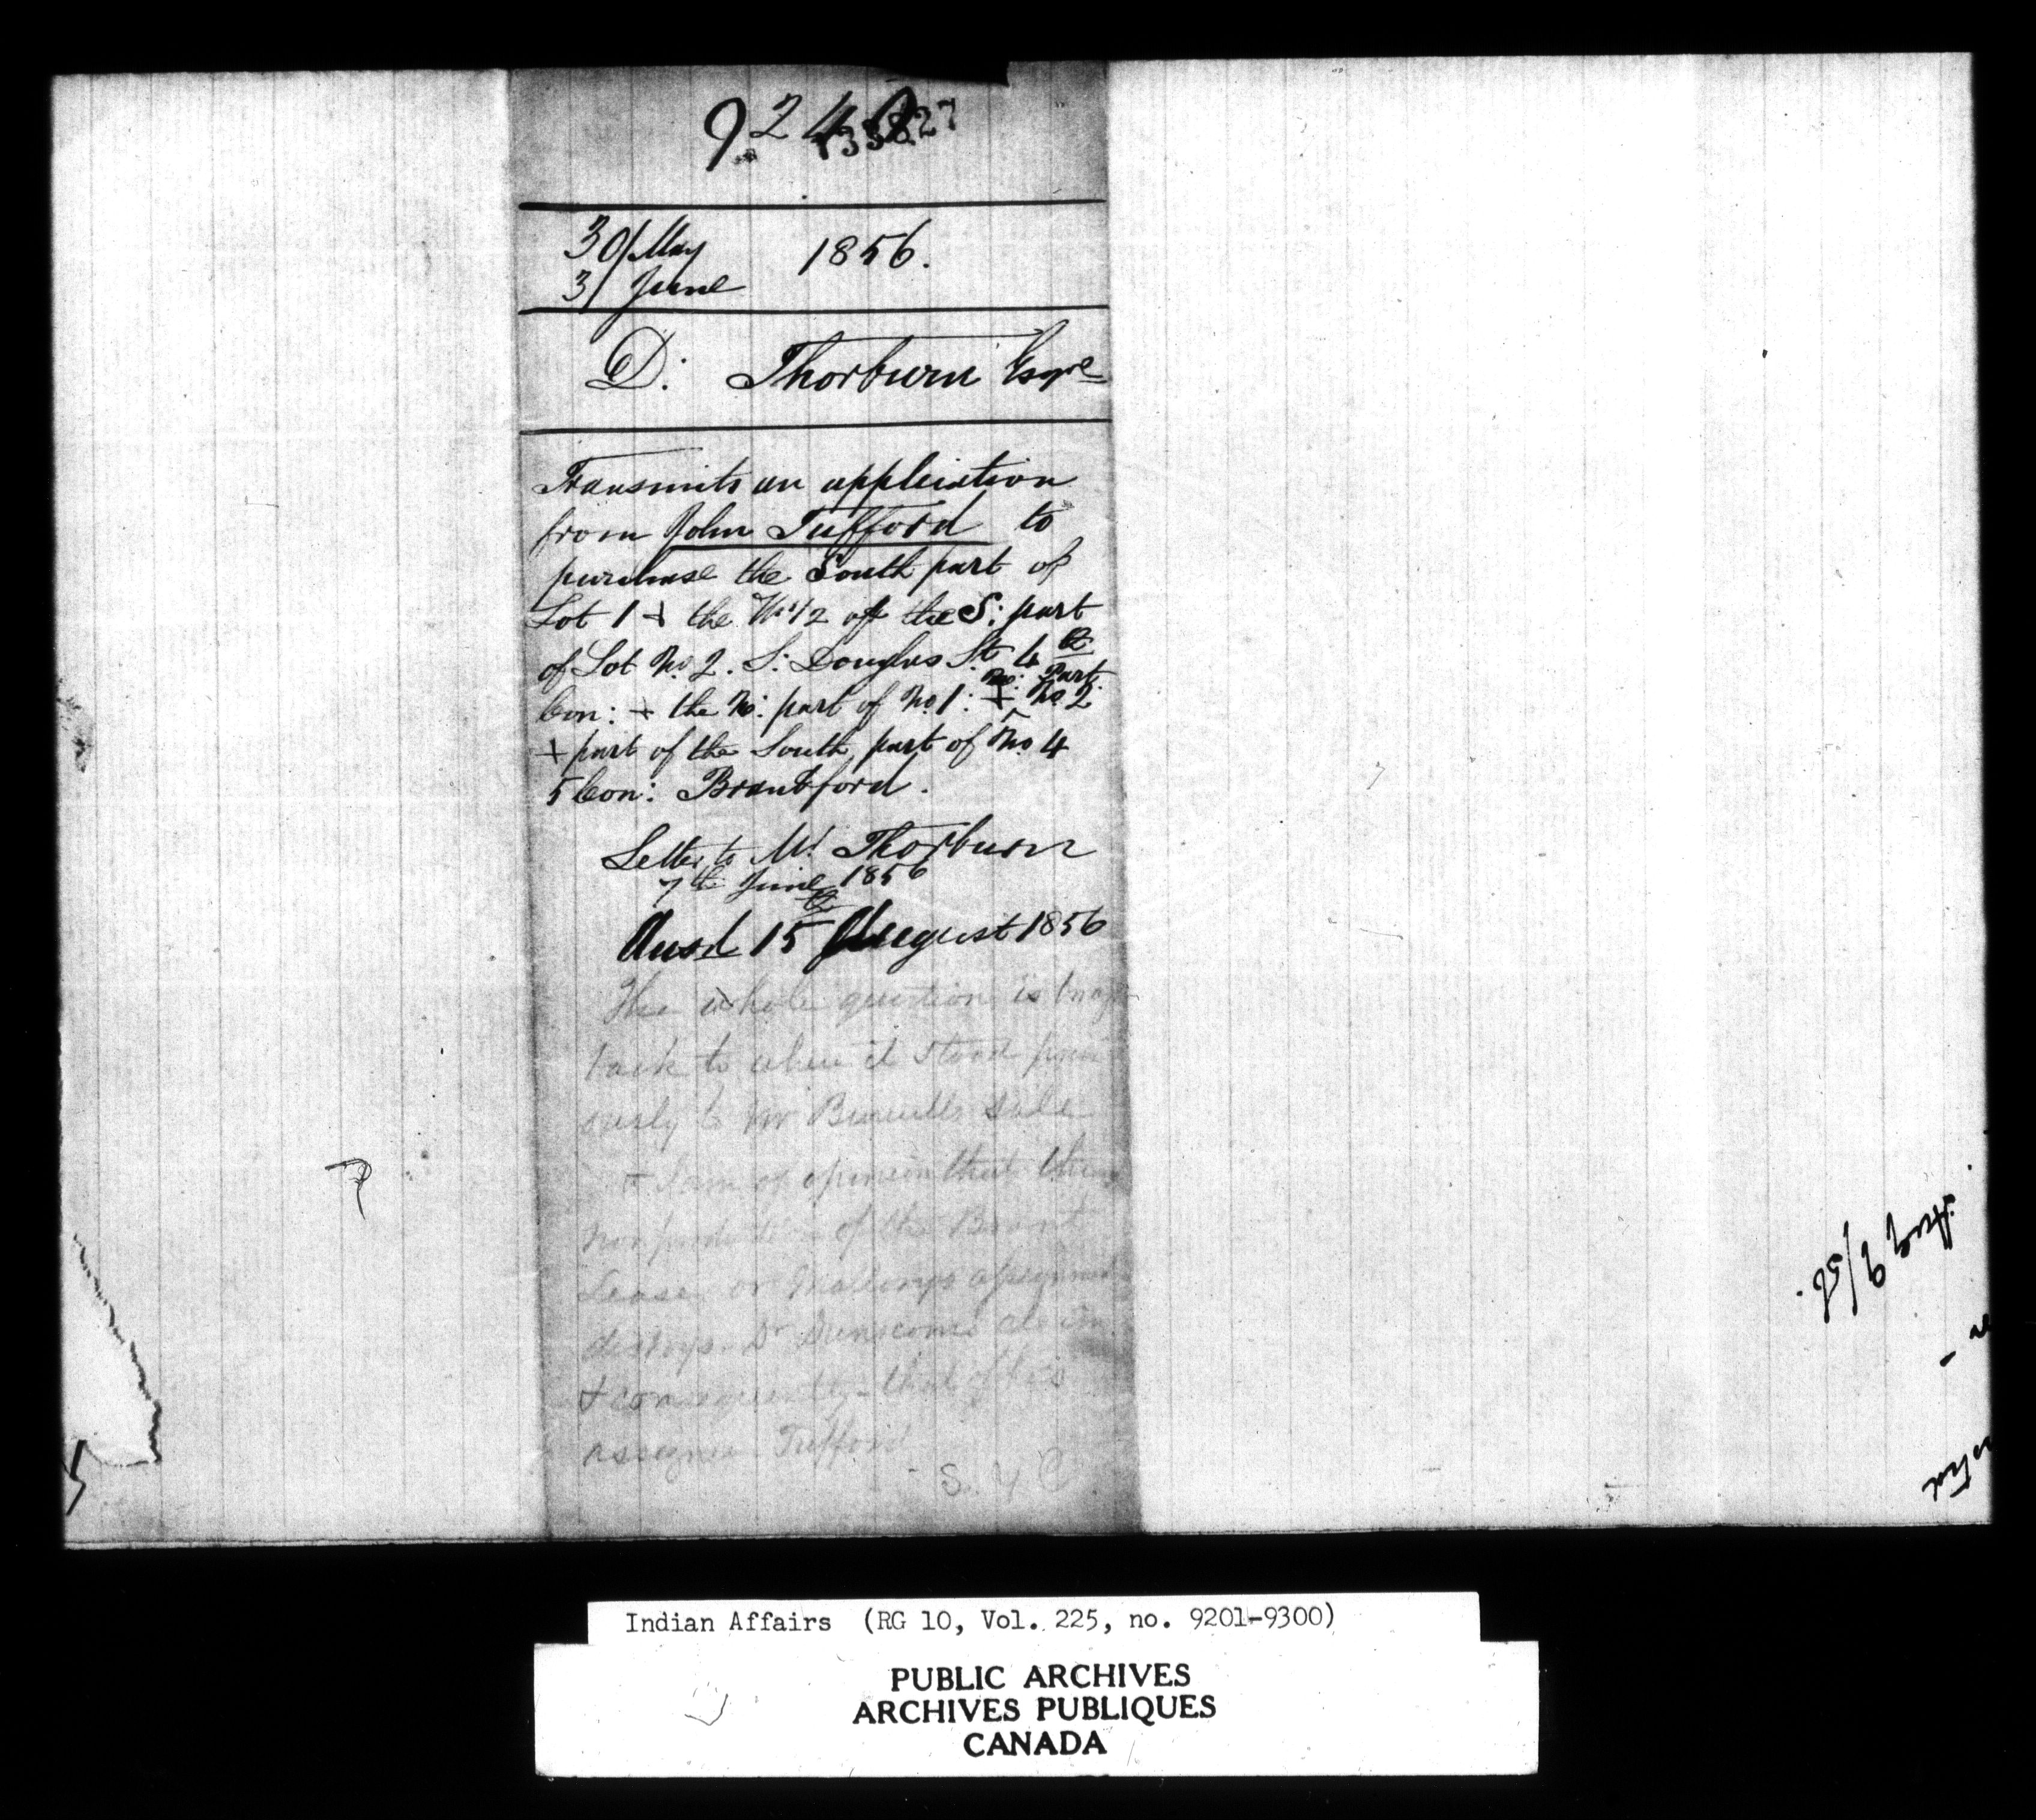 9240
133827
30/May 1856.
3/ June
D: Thorburn Esqre
Transmits an application
from John Tufford to
purchase the South part of
Lot 1 + the W 1/2 of the S: part
of Lot No 2. S: Douglas St 4
Con: + the No: part of No 1: + No: Part No 2
+ part of the South part of No 4
5 Con: Brantford.
Letter to Mr Thorburn
7th June 1856
Ansd 15 August 1856
The whole question is
back to where it stood previ
ously to Mr sale
+ I am of opinion that
non production of the Brant
Lease or
destroys Dr Dunscombs claim
+ consequently that of his
assignee Tufford
Aug 9/56.
Indian Affairs (RG 10, Vol. 225, no. 9201-9300)
PUBLIC ARCHIVES
ARCHIVES PUBLIQUES
CANADA